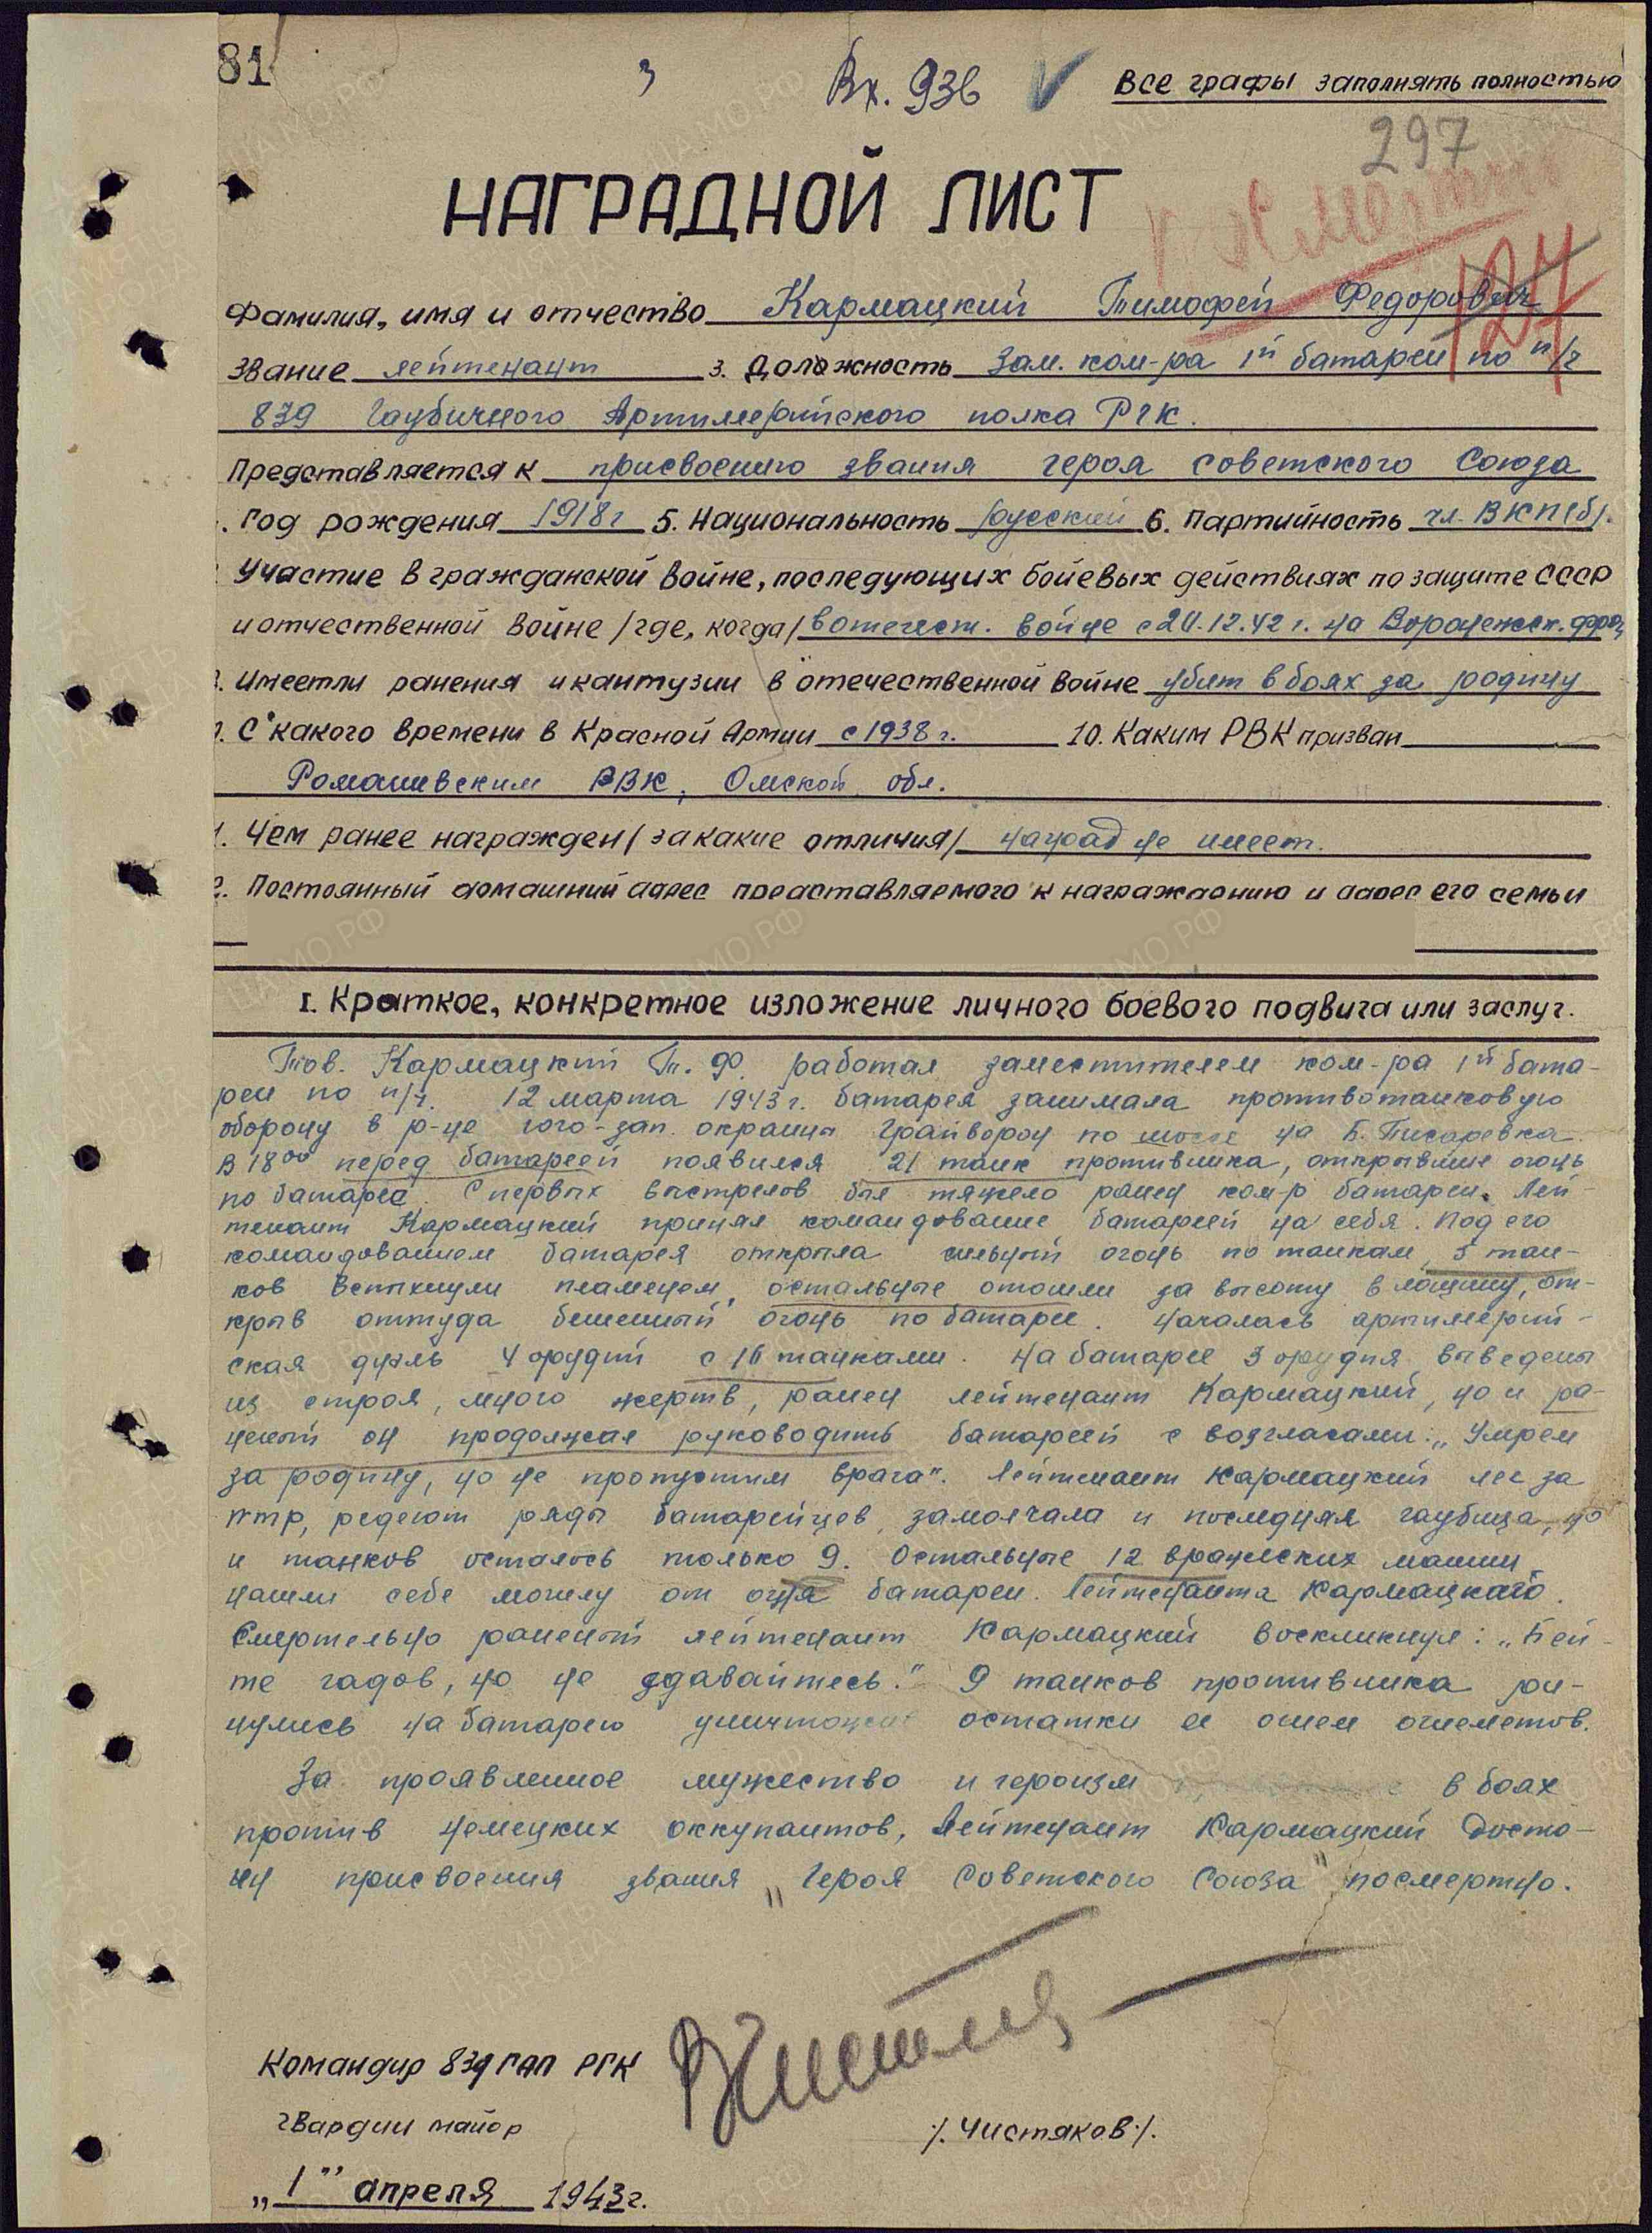 81
3
Вх. 936
Все графы заполнять полностью
297
Посмертно
127
НАГРАДНОЙ ЛИСТ
Фамилия, имя и отчество Кармацкий Тимофей Федорович
Звание лейтенант 3. Должность Зам. ком-ра 1й батареи по п/ч
839 Гаубичного Артиллерийского полка РГК.
Представляется к присвоению звания героя советского Союза
. Год рождения 1918г 5. Национальность русский 6. Партийность чл. ВКП(б).
Участие в гражданской войне, последующих бойевых действиях по защите СССР
и отчественной войне /где, когда/ в отечест. войне с 20.12.42 г. на Воронежск. фрон.
. Имеетли ранения и кантузии в отечественной войне убит в боях за родину
. С какого времени в Красной Армии с 1938 г. 10. Каким РВК призван
Ромашевским РВК, Омской обл.
. Чем ранее награжден /за какие отличия/ наград не имеет.
. Постоянный домашний адрес представляемого к награждению и адрес его семьи
I. Краткое, конкретное изложение личного боевого подвига или заслуг.
Тов. Кармацкий Т. Ф. работал заместителем ком-ра 1й бата-
реи по п/ч. 12 марта 1943 г. батарея занимала противотанковую
оборону в р-не юго-зап. окраины Грайворон по шоссе на Б. Писаревка.
В 18 00 перед батареей появился 21 танк противника, открывшие огонь
по батарее. С первых выстрелов был тяжело ранен ком-р батареи. Лей-
тенант Кармацкий принял командование батареей на себя. Под его
командованием батарея открыла сильный огонь по танкам, 5 тан-
ков вспыхнули пламенем, остальные отошли за высоту в лощину, от-
крыв оттуда бешенный огонь по батареи. Началась артиллерий-
ская дуэль 4 орудий с 16 танками. На батарее 3 орудия выведены
из строя, много жертв, ранен лейтенант Кармацкий, но и ра-
неный он продолжал руководить батареей с возгласами: „Умрем
за родину, но не пропустим врага". Лейтенант Кармацкий лег за
птр, редеют ряды батарейцев, замолчала и последняя гаубица, но
и танков осталось только 9. Остальные 12 вражеских машин
нашли себе могилу от огня батареи. Лейтенанта Кармацкаго.
Смертельно раненый лейтенант Кармацкий воскликнул: „Бей-
те гадов, но не сдавайтесь." 9 танков противника ри-
нулись на батарею уничтожив остатки ее огнем огнеметов.
За проявленное мужество и героизм в боях
против немецких оккупантов, Лейтенант Кармацкий Досто-
ин присвоения звания „Героя Советского Союза" посмертно.
Командир 839 ГАП РГК
гвардии майор
/. Чистяков./.
„1" апреля 1943г.